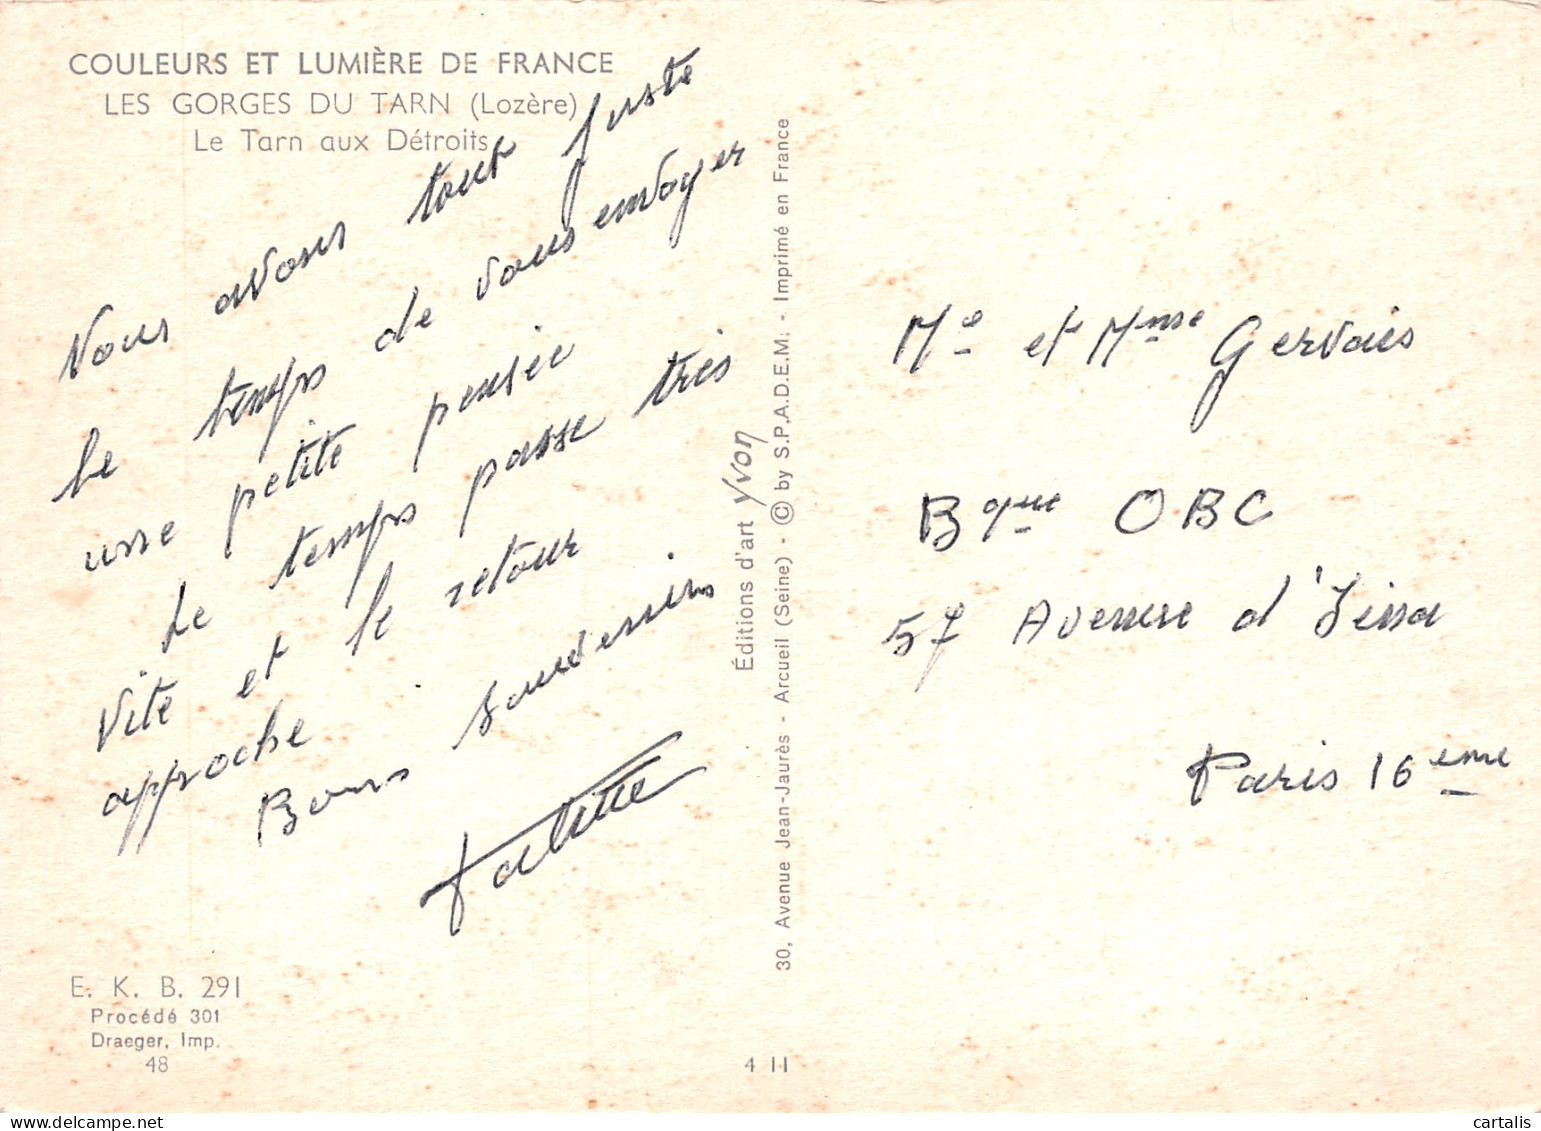 COULEURS ET LUMIÈRE DE FRANCE
LES GORGES DU TARN (Lozère)
Le Tarn aux Détroits
Nous avons tout juste
le temps de vous envoyer
une petite pensée
Le temps passe très
vite et le retour
approche.
Bons souvenirs
E. K. B. 291
Procédé 301
Draeger, Imp.
48
Éditions d'art yvon
30, Avenue Jean-Jaurès - Arcueil (Seine) - © by S.P.A.D.E.M. - Imprimé en France
4 11
Mr et Mme Gervais
Bque OBC
57 Avenue d'Iéna
Paris 16 eme
cartalis